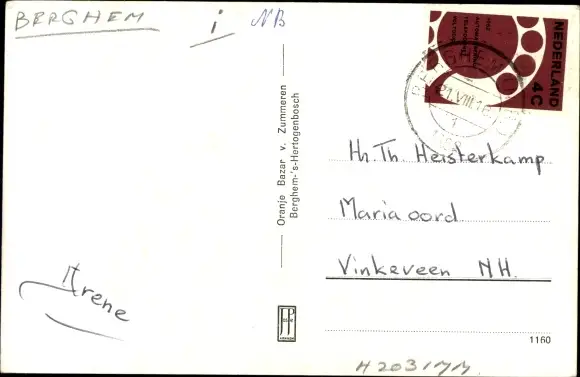 BERGHEM
i
NB
NEDERLAND
4C
1962
21.VIII.16
1
Oranje Bazar v. Zummeren
Berghem-'s-Hertogenbosch
Hr. Th. Heisterkamp
Maria oord
Vinkeveen NH.
Irene
JP
1160
H2031MM.